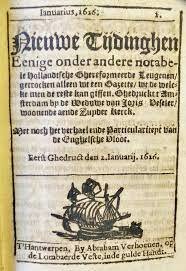 Ianuarius, 1626; 2.
Nieuwe Tijdinghen
Eenige onder andere notabe-
le Hollandtsche Ghereformeerde Leugenen/
getrocken alleen wt een Gazette/ wt de wel-
men de reste kan gissen. Ghedruckt Am-
sterdam by de Weduwe van Joris Veseler/
woonende aende Zuyder Kerck.
Met noch het verhael ende Particulariteyt van de
Enghelsche Vloot.
Eerst Ghedruct den 2. Ianuarij. 1626.
T'Hantwerpen, By Abraham Verhoeuen, op
de Lombaerde Veste, inde gulde Sonne.